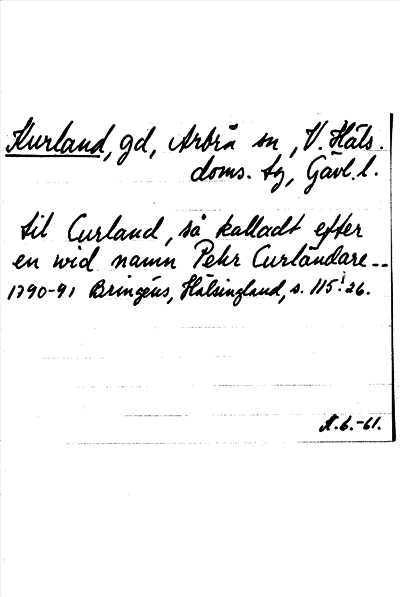 Kurland, gd, Arbrå sn, V. Häls.
doms. tg, Gävl. l.
til Curland, så kalladt efter
en wid namn Pehr Curländare --
1790-91 Bringéus, Hälsingland, s. 115: 26.
A. 6. -61.